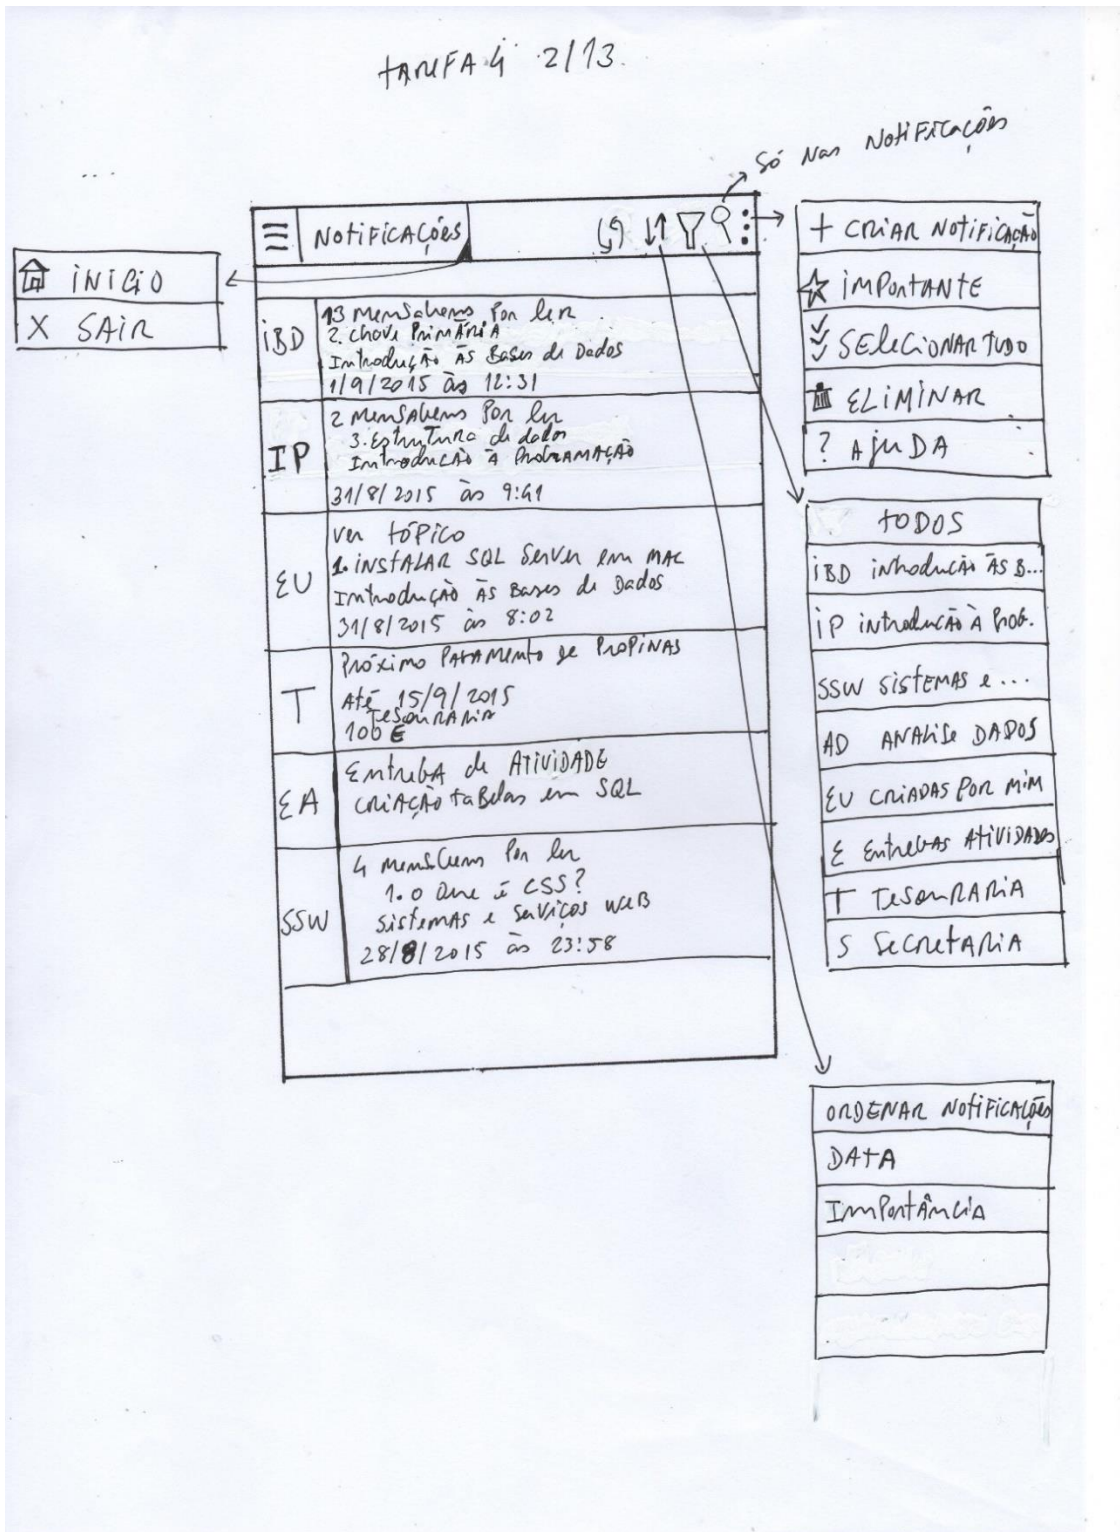 TAREFA 4 2/13.
...
Só NAS NotiFicações
NotiFicações
iNiCiO
X SAiR
iBD
13 MenSAGens Por ler
2. Chave PriMÁRiA
Introdução ÀS Bases de Dados
1/9/2015 às 12:31
IP
2 MenSAGens Por ler
3. Estrutura de dados
Introdução à ProGrAMAÇÃO
31/8/2015 às 9:41
EU
Ver tÓPico
1. iNStALAR SQL Server em MAC
Introdução ÀS Bases de Dados
31/8/2015 às 8:02
T
Próximo PAGAMento de PROPiNAS
Até 15/9/2015
TesouRARiA
100 €
EA
EntreGA de AtiViDADE
CRiAÇÃO taBelas em SQL
SSW
4 MensAGens Por ler
1. O Que é CSS?
SistEMAS e SerViços WeB
28/8/2015 às 23:58
+ CRiAR NotiFicAÇÃO
iMPortANTE
SELecioNAR TUDO
ELiMiNAR
? AjuDA
tODOS
iBD introdução ÀS B...
iP introdução À ProG.
SSW SiStEMAS e ...
AD ANALiSe DADOS
EU CRiADAS POR MiM
E EntreGAS AtiViDADES
T TesouRARiA
S SecretARiA
ORDENAR NotiFicAções
DATA
ImPortânciA